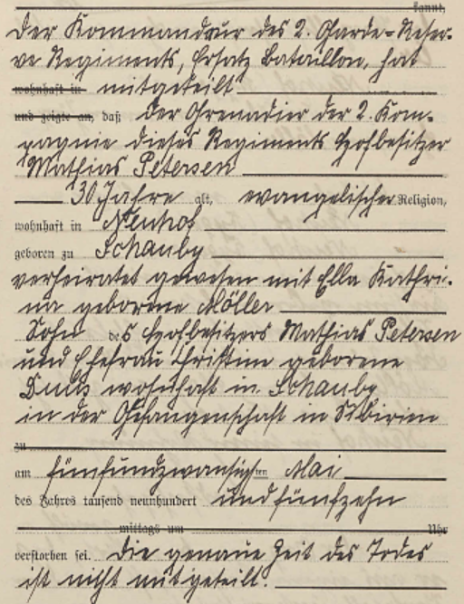 kannt,
Der Kommandeur des 2. Garde-Reser-
ve Regiments, Ersatz Bataillon, hat
wohnhaft in mitgeteilt
und zeigte an, daß der Grenadier der 2. Kom-
pagnie dieses Regiments Hofbesitzer
Mathias Petersen
30 Jahre alt, evangelischer Religion,
wohnhaft in Neuhof
geboren zu Schauby
verheiratet gewesen mit Ella Kathri-
na geborene Möller
Sohn des Hofbesitzers Mathias Petersen
und Ehefrau Christine geborene
wohnhaft in Schauby
in der Gefangenschaft in Sibirien
zu
am fünfundzwanzigsten Mai
des Jahres tausend neunhundert und fünfzehn
mittags um Uhr
verstorben sei. Die genaue Zeit des Todes
ist nicht mitgeteilt.